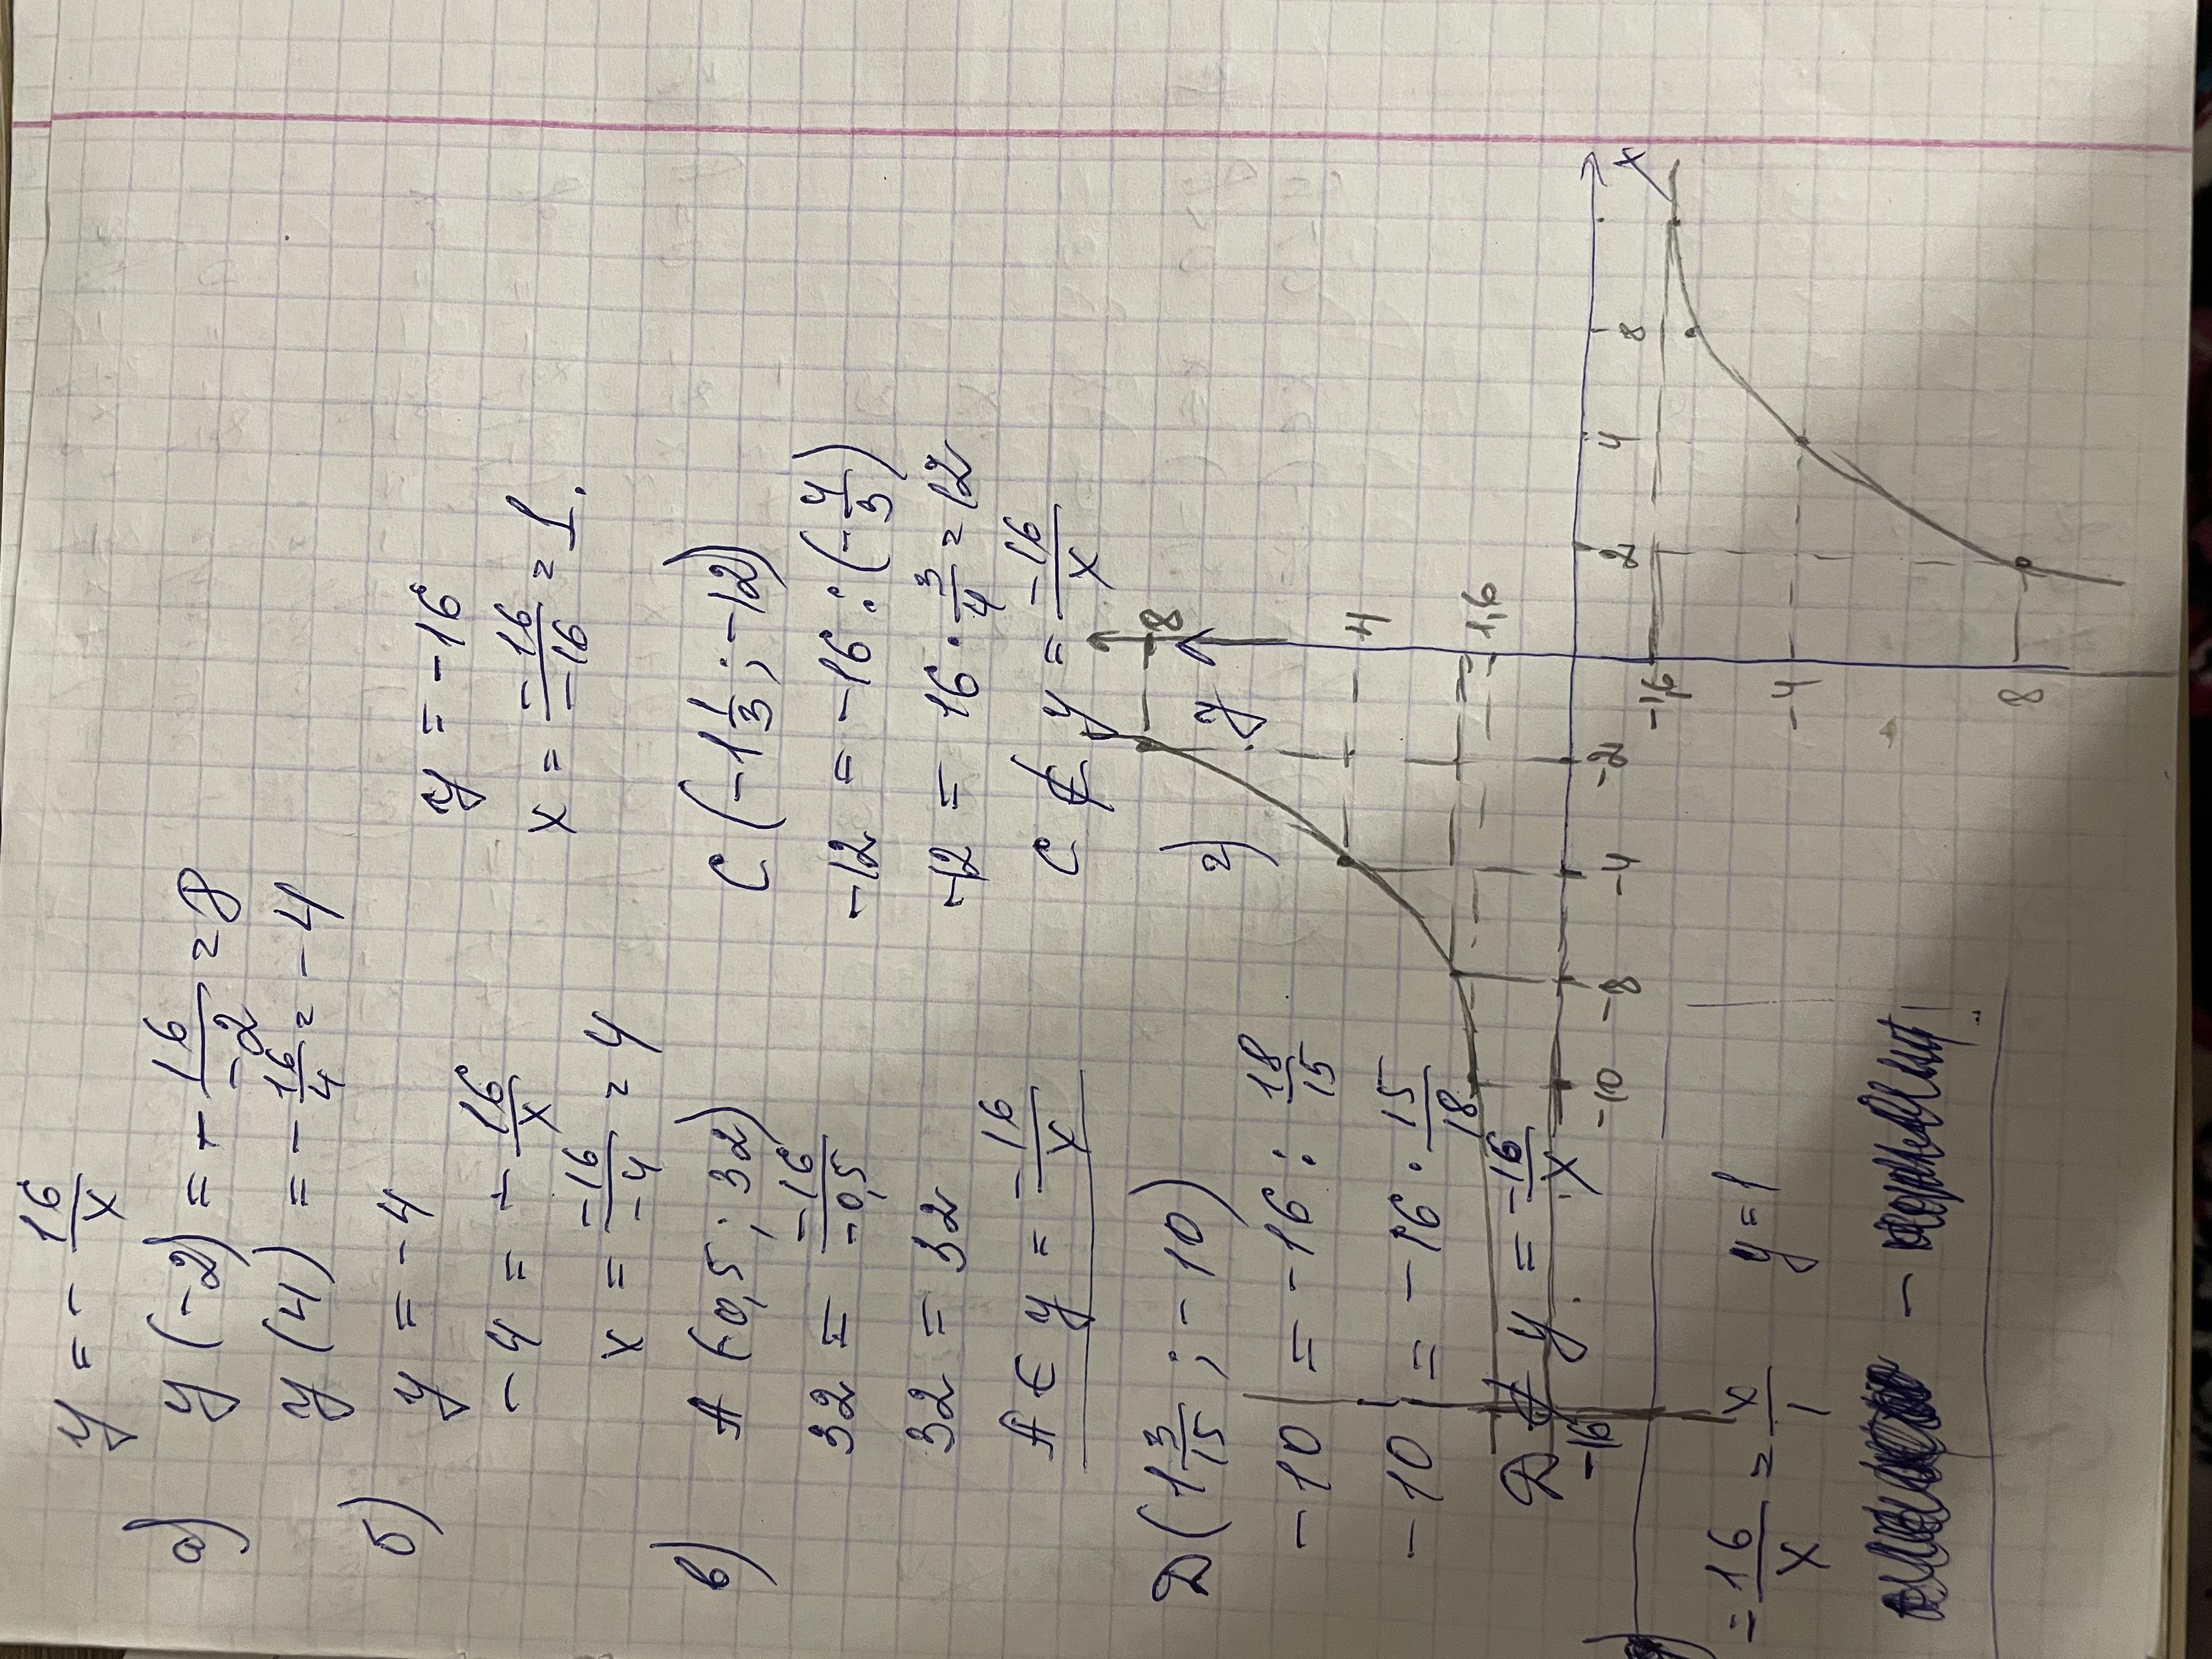 y = - 16/x
а) y (-2) = - 16/-2 = 8
y (4) = - 16/4 = - 4
б) y = - 4
- 4 = - 16/x
x = -16/-4 = 4
y = - 16
x = -16/-16 = 1.
в) A (-0,5; 32)
32 = -16/-0,5
32 = 32
A ∈ y = -16/x
C (-1 1/3; -12)
-12 = -16 : (-4/3)
-12 = 16 · 3/4 = 12
C ∉ y = -16/x
D (1 3/15; -10)
-10 = -16 : 18/15
-10 = -16 · 15/18
D ∉ y = -16/x
г)
y
8
4
1,6
x
-16 -10 -8 -4 -2 2 4 8
-1,6
-4
8
= -16/x = x/1 y = 1